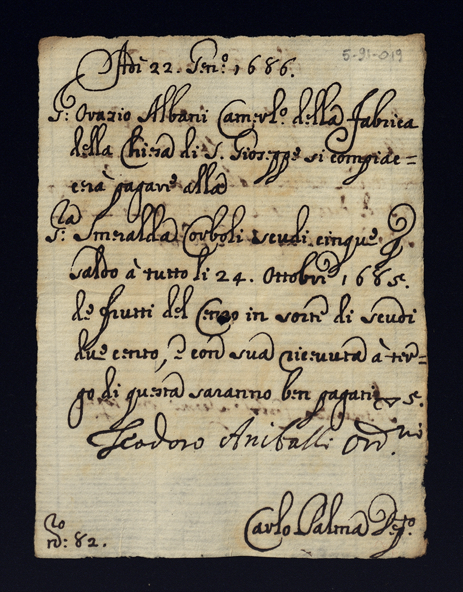 5-91-019
Adì 22. Gen.º 1686.
S.r Orazio Albani Camerl.º della Fabrica
della Chiesa di S. Gioseppe si compiac=
cerà pagare alla
S.ra Smeralda Corboli scudi cinque p
saldo à tutto li 24. Ottobre 1685.
de frutti del Cenzo in sorte di scudi
due cento, è con sua ricevuta à ter=
go di questa saranno ben pagati 5.
Teodoro Aniballi Ord.
Carlo Palma Dep.to
n.º: 82.